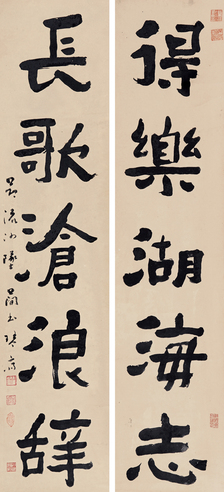 得樂湖海志
長歌滄浪辭